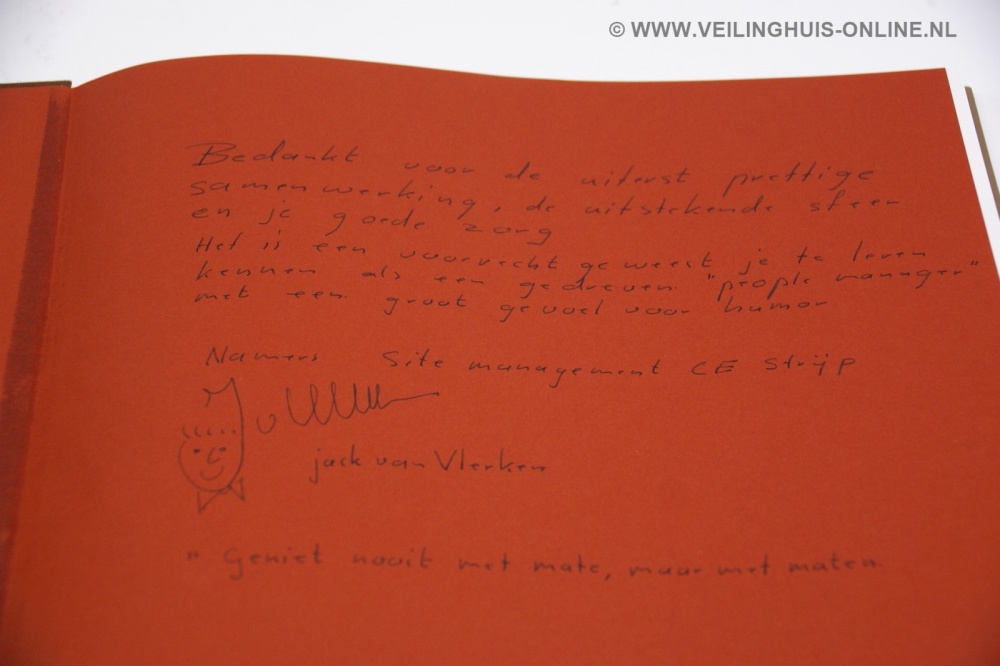 © WWW.VEILINGHUIS-ONLINE.NL
Bedankt voor de uiterst prettige
samenwerking, de uitstekende sfeer
en je goede zorg
Het is een voorrecht geweest je te leren
kennen als een gedreven "people manager"
met een groot gevoel voor humor
Namens Site management CE Strijp
Jack van Vlerken
" Geniet nooit met mate, maar met maten.